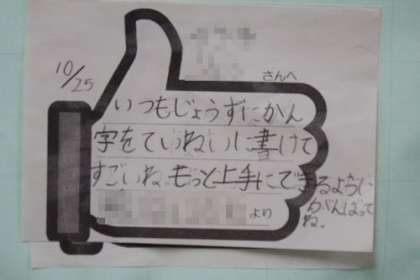 10/25
さんへ
いつもじょうずにかん
字をていねいに書けて
すごいね。もっと上手にできるように
がんばって
ね。
より